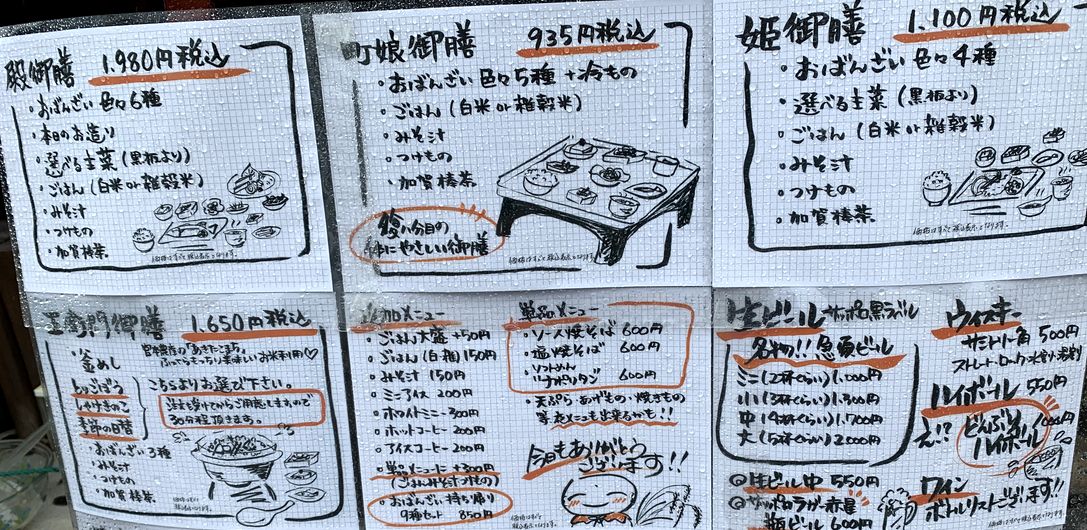 殿御膳 1.980円税込
・おばんざい色々6種
・本日のお造り
・選べる主菜(黒板より)
・ごはん(白米or雑穀米)
・みそ汁
・つけもの
・加賀棒茶
町娘御膳 935円税込
・おばんざい色々5種+冷もの
・ごはん(白米or雑穀米)
・みそ汁
・つけもの
・加賀棒茶
腹八分目の
体にやさしい御膳
姫御膳 1.100円税込
・おばんざい色々4種
・選べる主菜(黒板より)
・ごはん(白米or雑穀米)
・みそ汁
・つけもの
・加賀棒茶
御膳 1.650円税込
・釜めし
とりごぼう
しゃけきのこ
季節の日替
こちらよりお選び下さい。
注文を受けてからご用意しますので
30分程頂きます。
・おばんざい3種
・みそ汁
・つけもの
・加賀棒茶
追加メニュー
ごはん大盛+50円
ごはん(白・雑)150円
みそ汁 150円
ミニアイス 200円
ホワイトミニー300円
ホットコーヒー200円
アイスコーヒー200円
単品メニューに+300円
(ごはんみそつけもの)
おばんざい持ち帰り
9種セット 850円
単品メニュー
ソース焼そば 600円
塩焼そば 600円
ソフトめん
600円
天ぷら・あげもの・焼きもの
等夜メニューも出来るかも!!
今日もありがとう
ございます!!
生ビール サッポロ黒ラベル
名物!!急須ビール
ミニ(2杯くらい)1.000円
小(3杯くらい)1.300円
中(4杯くらい)1.700円
大(5杯くらい)2.000円
生ビール中 550円
サッポロラガー赤星
瓶ビール 600円
ウィスキー
サントリー角 500円
ハイボール 550円
え!?どんぶり
ハイボール
ワイン
ボトルリストございます!!